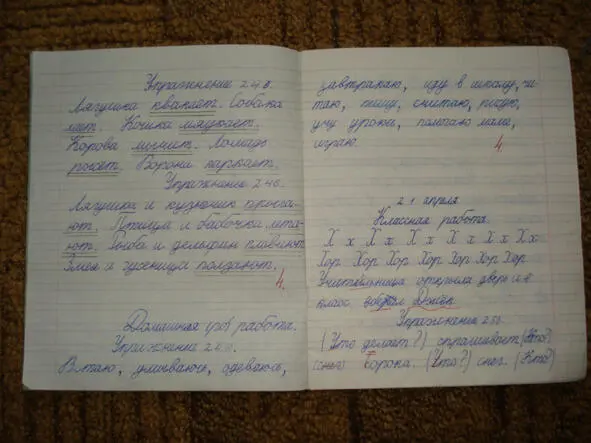 Упражнение 243.
Лягушка квакает. Собака
лает. Кошка мяукает.
Корова мычит. Лошадь
рогает. Ворона каркает.
Упражнение 246.
Лягушка и кузнечик прыга-
ют. Птица и бабочка лета-
ют. Рыба и дельфин плавают
Змея и гусеница ползают.
4.
Домашняя работа.
Упражнение
Встаю, умываюсь, одеваюсь,
завтракаю, иду в школу, чи-
таю, пишу, считаю, рисую,
учу уроки, помогаю маме,
играю.
4
21 апреля
Классная работа.
Х х Х х Х х Х х Х х
Хор Хор Хор Хор Хор Хор Хор
Учительница открыла дверь и в
класс Джек.
Упражнение 256.
(Что делает?) спрашивает (Кто?)
ворона. (Что?) снег. (Кто?)